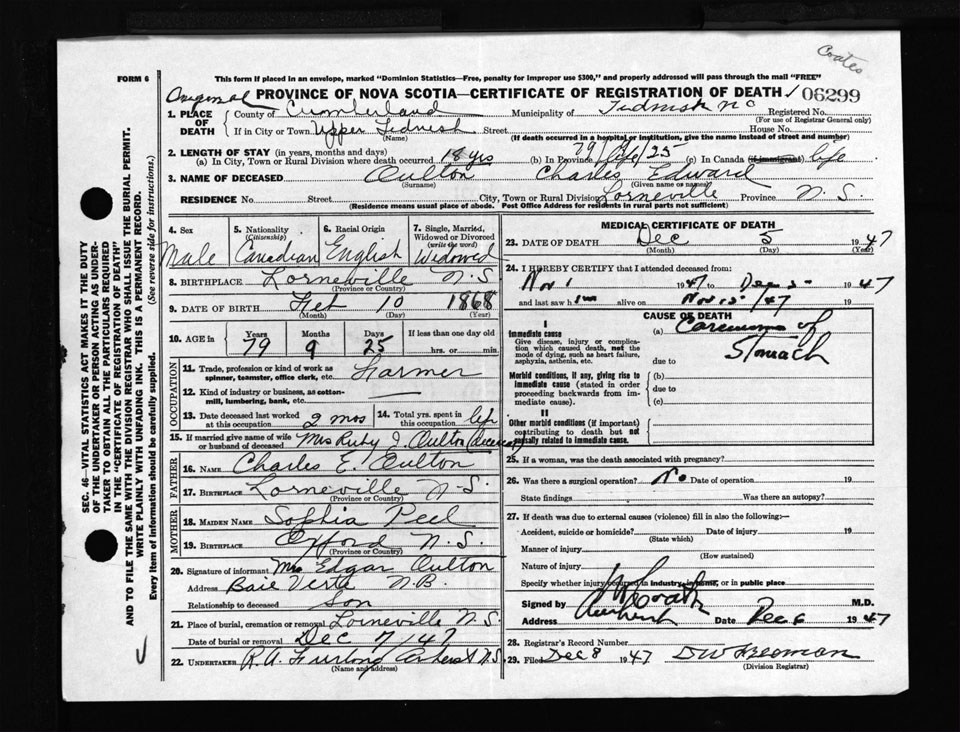 Coates
FORM 6
This form if placed in an envelope, marked "Dominion Statistics—Free, penalty for improper use $300," and properly addressed will pass through the mail "FREE"
Original
PROVINCE OF NOVA SCOTIA—CERTIFICATE OF REGISTRATION OF DEATH
06299
1. PLACE OF DEATH
County of Cumberland Municipality of Tidnish NS Registered No.
(For use of Registrar General only)
If in City or Town Upper Tidnish Street House No.
(Name) (If death occurred in a hospital or institution, give the name instead of street and number)
2. LENGTH OF STAY (in years, months and days)
(a) In City, Town or Rural Division where death occurred 18 yrs (b) In Province 79/9/25 life (c) In Canada (if immigrant) life
3. NAME OF DECEASED Oulton Charles Edward
(Surname) (Given name or names)
RESIDENCE No. Street City, Town or Rural Division Lorneville Province N.S.
(Residence means usual place of abode. Post Office Address for residents in rural parts not sufficient)
4. Sex Male
5. Nationality (Citizenship) Canadian
6. Racial Origin English
7. Single, Married, Widowed or Divorced (write the word) Widowed
8. BIRTHPLACE Lorneville N.S.
(Province or Country)
9. DATE OF BIRTH Feb 10 1868
(Month) (Day) (Year)
10. AGE in Years Months Days If less than one day old
79 9 25 hrs. or min.
OCCUPATION
11. Trade, profession or kind of work as spinner, teamster, office clerk, etc. Farmer
12. Kind of industry or business, as cotton-mill, lumbering, bank, etc. —
13. Date deceased last worked at this occupation 2 mos
14. Total yrs. spent in this occupation life
15. If married give name of wife or husband of deceased Mrs Ruby J. Oulton (deceased)
FATHER
16. NAME Charles E. Oulton
17. BIRTHPLACE Lorneville N.S.
(Province or Country)
MOTHER
18. MAIDEN NAME Sophia Peel
19. BIRTHPLACE Oxford N.S.
(Province or Country)
20. Signature of informant Mrs Edgar Oulton
Address Baie Verte N.B.
Relationship to deceased Son
21. Place of burial, cremation or removal Lorneville N.S.
Date of burial or removal Dec 7/47
22. UNDERTAKER R.A. Furlong Amherst N.S.
(Name and address)
MEDICAL CERTIFICATE OF DEATH
23. DATE OF DEATH Dec 5 1947
(Month) (Day) (Year)
24. I HEREBY CERTIFY that I attended deceased from:
Nov 1 1947 to Dec 1947
and last saw him alive on Nov 1947
CAUSE OF DEATH
I
Immediate cause
Give disease, injury or complication which caused death, not the mode of dying, such as heart failure, asphyxia, asthenia, etc.
(a) Carcinoma of Stomach
due to
Morbid conditions, if any, giving rise to immediate cause (stated in order proceeding backwards from immediate cause).
(b)
due to
(c)
II
Other morbid conditions (if important) contributing to death but not causally related to immediate cause.
25. If a woman, was the death associated with pregnancy?
26. Was there a surgical operation? No Date of operation 19
State findings Was there an autopsy?
27. If death was due to external causes (violence) fill in also the following:—
Accident, suicide or homicide? Date of injury 19
(State which)
Manner of injury
(How sustained)
Nature of injury
Specify whether injury occurred in industry, in home, or in public place
Signed by M.D.
Address Amherst Date Dec 6 1947
28. Registrar's Record Number
29. Filed Dec 8 1947
(Division Registrar)
SEC. 46—VITAL STATISTICS ACT MAKES IT THE DUTY
OF THE UNDERTAKER OR PERSON ACTING AS UNDER-
TAKER TO OBTAIN ALL THE PARTICULARS REQUIRED
IN THE "CERTIFICATE OF REGISTRATION OF DEATH"
AND TO FILE THE SAME WITH THE DIVISION REGISTRAR WHO SHALL ISSUE THE BURIAL PERMIT.
WRITE PLAINLY WITH UNFADING INK. THIS IS A PERMANENT RECORD.
Every item of information should be carefully supplied. (See reverse side for instructions.)